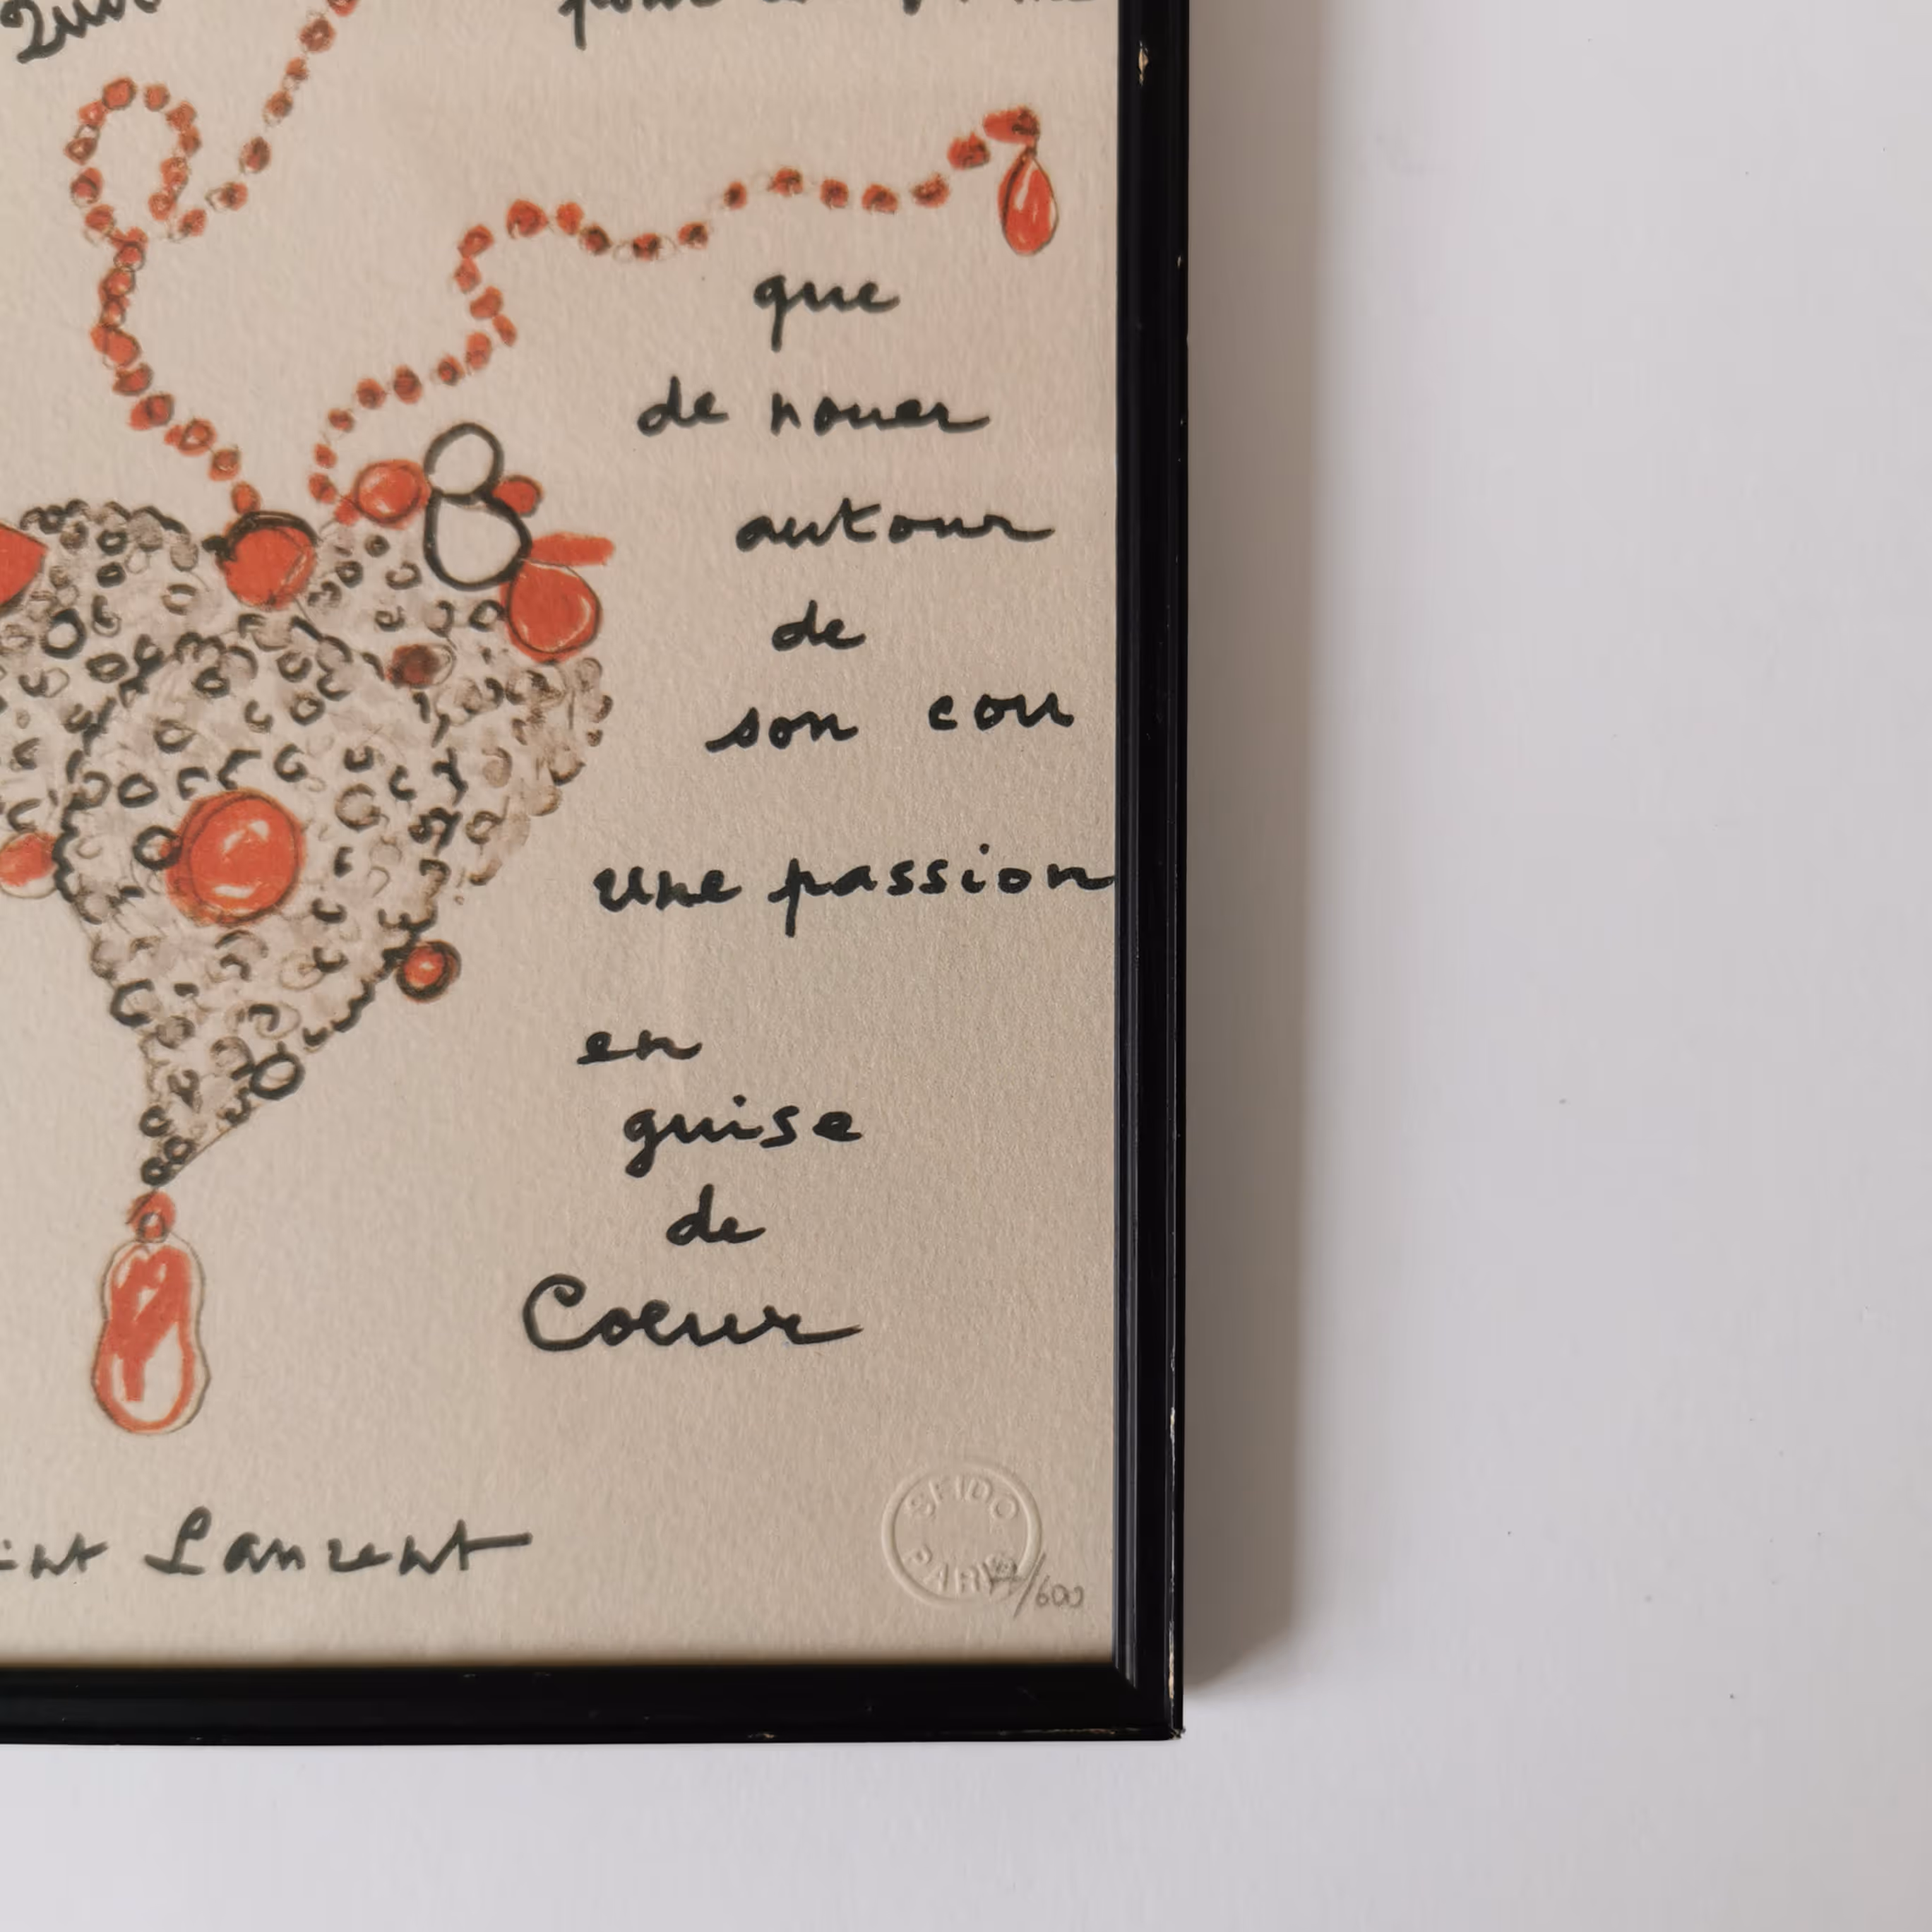 pour
que
de nouer
autour
de
son cou
une passion
en
guise
de
Coeur
Laurent
SFIDO
PARIS
/600